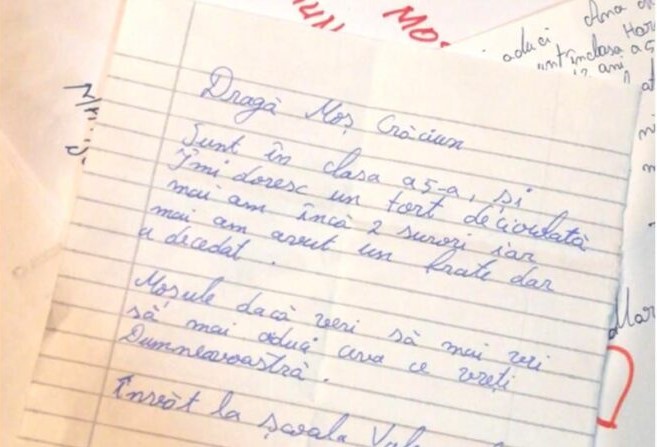 Dragă Moș Crăciun
Sunt în clasa a 5-a, și
Îmi doresc un tort de ciocolată
mai am încă 2 surori iar
mai am avut un frate dar
a decedat.
Moșule dacă veri să mai veri
să mai aduci ceva ce vreți
Dumneavoastră.
Învăt la școala
aduci
Ana
în clasa
12 ani a 5
Mar